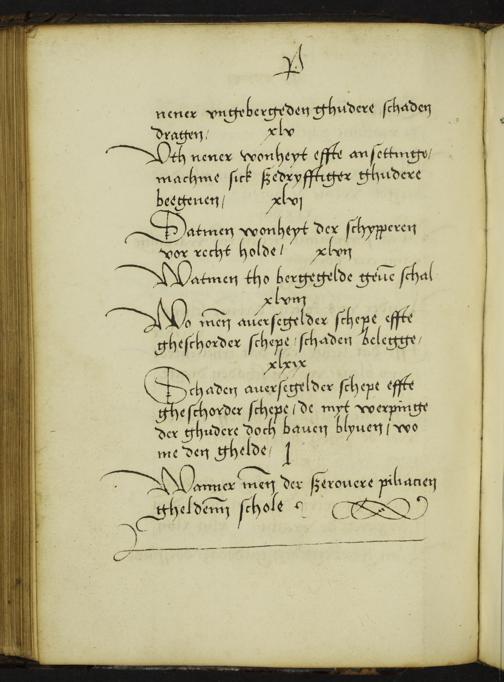 nener vngebergeden ghudere schaden
dragen / xlv
Vth nener wonheyt effte ansettinge /
machme sick szedryfftiger ghudere
beegenen / xlvi
Datmen wonheyt der schypperen
vor recht holde / xlvii
Watmen tho bergegelde geue schal
xlviii
Wo men auersegelder schepe effte
gheschorder schepe / schaden belegge /
xlxix
Schaden auersegelder schepe effte
gheschorder schepe / de myt werpinge
der ghudere doch bauen blyuen / wo
me den ghelde / l
Wanner men der szerouere piliacien
gheldenn schole